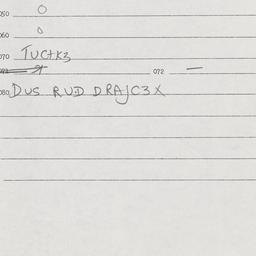 050 O
060 O
070 TUCTK3
072 —
080 DUS RUD DRAJC3X